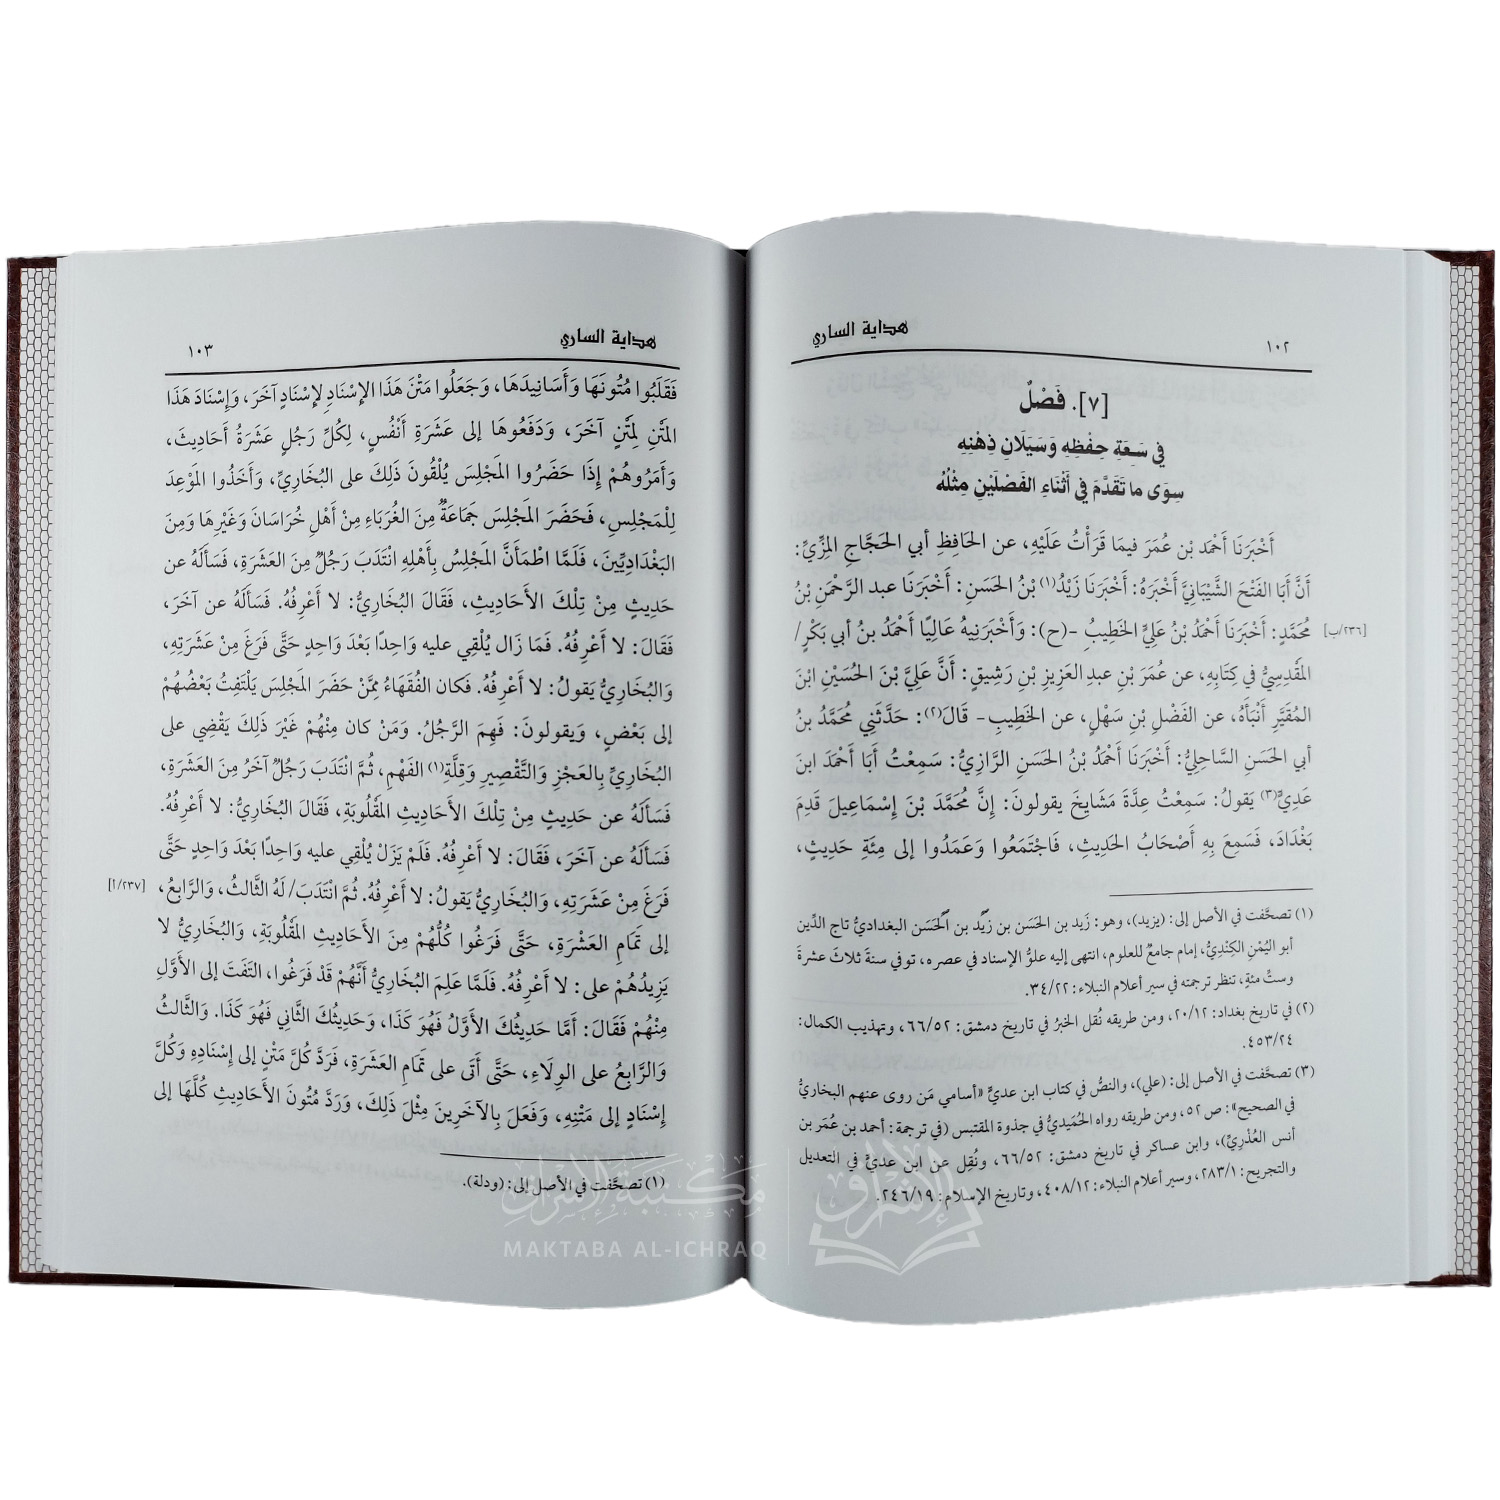 ١٠٢
هداية الساري
[٧]. فَصْلٌ
في سَعَةِ حِفْظِهِ وَسَيَلَانِ ذِهْنِهِ
سِوَى ما تَقَدَّمَ في أَثْنَاءِ الفَصْلَيْنِ مِثْلُهُ
أَخْبَرَنَا أَحْمَدُ بْنُ عُمَرَ فيمَا قَرَأْتُ عَلَيْهِ، عن الحَافِظِ أبي الحَجَّاجِ المِزِّيِّ:
أَنَّ أَبَا الفَتْحِ الشَّيْبَانِيَّ أَخْبَرَهُ: أَخْبَرَنَا زَيْدُ(١) بْنُ الحَسَنِ: أَخْبَرَنَا عبد الرَّحْمَنِ بْنُ
مُحَمَّدٍ: أَخْبَرَنَا أَحْمَدُ بْنُ عَلِيٍّ الخَطِيبُ -(ح): وَأَخْبَرَنِيهِ عَالِيًا أَحْمَدُ بنُ أبي بَكْرٍ/
[٢٣٦/ب]
المَقْدِسِيُّ في كِتَابِهِ، عن عُمَرَ بْنِ عبدِ العَزِيزِ بْنِ رَشِيقٍ: أَنَّ عَلِيَّ بْنَ الحُسَيْنِ ابْنَ
المُقَيَّرِ أَنْبَأَهُ، عن الفَضْلِ بْنِ سَهْلٍ، عن الخَطِيبِ- قَالَ(٢): حَدَّثَنِي مُحَمَّدُ بنُ
أبي الحَسَنِ السَّاحِلِيُّ: أَخْبَرَنَا أَحْمَدُ بْنُ الحَسَنِ الرَّازِيُّ: سَمِعْتُ أَبَا أَحْمَدَ ابنَ
عَدِيٍّ(٣) يَقولُ: سَمِعْتُ عِدَّةَ مَشَايِخَ يقولونَ: إِنَّ مُحَمَّدَ بْنَ إِسْمَاعِيلَ قَدِمَ
بَغْدَادَ، فَسَمِعَ بِهِ أَصْحَابُ الحَدِيثِ، فَاجْتَمَعُوا وَعَمَدُوا إلى مِئَةِ حَدِيثٍ،
(١) تصحَّفت في الأصل إلى: (يزيد)، وهو: زَيد بن الحَسَن بن زَيْد بن الحَسَن البغداديُّ تاج الدِّين
أبو اليُمْنِ الكِنْدِيُّ، إمام جامعٌ للعلوم، انتهى إليه علوُّ الإسناد في عصره، توفي سنةَ ثلاث عشرةَ
وستِّ مئةٍ، تنظر ترجمته في سير أعلام النبلاء: ٣٤/٢٢.
(٢) في تاريخ بغداد: ٢٠/١٢، ومن طريقه نُقل الخبرُ في تاريخ دمشق: ٦٦/٥٢، وتهذيب الكمال:
٤٥٣/٢٤.
(٣) تصحَّفت في الأصل إلى: (علي)، والنصُّ في كتاب ابن عديٍّ «أسامي مَن روى عنهم البخاريُّ
في الصحيح»: ص٥٢، ومن طريقه رواه الحُمَيديُّ في جذوة المقتبس (في ترجمة: أحمد بن عُمَر بن
أنس العُذْرِيّ)، وابن عساكر في تاريخ دمشق: ٦٦/٥٢، ونُقِل عن ابن عديٍّ في التعديل
والتجريح: ٢٨٣/١، وسير أعلام النبلاء: ٤٠٨/١٢، وتاريخ الإسلام: ٢٤٦/١٩.
هداية الساري
١٠٣
فَقَلَبُوا مُتُونَهَا وَأَسَانِيدَهَا، وَجَعَلُوا مَتْنَ هَذَا الإِسْنَادِ لِإِسْنَادٍ آخَرَ، وَإِسْنَادَ هَذَا
المَتْنِ لِمَتْنٍ آخَرَ، وَدَفَعُوهَا إلى عَشَرَةِ أَنْفُسٍ، لِكُلِّ رَجُلٍ عَشَرَةُ أَحَادِيثَ،
وَأَمَرُوهُمْ إِذَا حَضَرُوا المَجْلِسَ يُلْقُونَ ذَلِكَ على البُخَارِيِّ، وَأَخَذُوا المَوْعِدَ
لِلْمَجْلِسِ، فَحَضَرَ المَجْلِسَ جَمَاعَةٌ مِنَ الغُرَبَاءِ مِنْ أَهْلِ خُرَاسَانَ وَغَيْرِهَا وَمِنَ
البَغْدَادِيِّينَ، فَلَمَّا اطْمَأَنَّ المَجْلِسُ بِأَهْلِهِ انْتَدَبَ رَجُلٌ مِنَ العَشَرَةِ، فَسَأَلَهُ عن
حَدِيثٍ مِنْ تِلْكَ الأَحَادِيثِ، فَقَالَ البُخَارِيُّ: لا أَعْرِفُهُ. فَسَأَلَهُ عن آخَرَ،
فَقَالَ: لا أَعْرِفُهُ. فَمَا زَال يُلْقِي عليه وَاحِدًا بَعْدَ وَاحِدٍ حَتَّى فَرَغَ مِنْ عَشَرَتِهِ،
وَالبُخَارِيُّ يَقولُ: لا أَعْرِفُهُ. فَكان الفُقَهَاءُ مِمَّنْ حَضَرَ المَجْلِسَ يَلْتَفِتُ بَعْضُهُمْ
إلى بَعْضٍ، وَيقولونَ: فَهِمَ الرَّجُلُ. وَمَنْ كان مِنْهُمْ غَيْرَ ذَلِكَ يَقْضِي على
البُخَارِيِّ بِالعَجْزِ وَالتَّقْصِيرِ وَقِلَّةِ(١) الفَهْمِ، ثُمَّ انْتَدَبَ رَجُلٌ آخَرُ مِنَ العَشَرَةِ،
فَسَأَلَهُ عن حَدِيثٍ مِنْ تِلْكَ الأَحَادِيثِ المَقْلُوبَةِ، فَقَالَ البُخَارِيُّ: لا أَعْرِفُهُ.
فَسَأَلَهُ عن آخَرَ، فَقَالَ: لا أَعْرِفُهُ. فَلَمْ يَزَلْ يُلْقِي عليه وَاحِدًا بَعْدَ وَاحِدٍ حَتَّى
فَرَغَ مِنْ عَشَرَتِهِ، وَالبُخَارِيُّ يَقولُ: لا أَعْرِفُهُ. ثُمَّ انْتَدَبَ/ لَهُ الثَّالثُ، وَالرَّابعُ،
[٢٣٧/أ]
إلى تَمَامِ العَشْرَةِ، حَتَّى فَرَغُوا كُلُّهُمْ مِنَ الأَحَادِيثِ المَقْلُوبَةِ، وَالبُخَارِيُّ لا
يَزِيدُهُمْ على: لا أَعْرِفُهُ. فَلَمَّا عَلِمَ البُخَارِيُّ أَنَّهُمْ قَدْ فَرَغُوا، التَفَتَ إلى الأَوَّلِ
مِنْهُمْ فَقَالَ: أَمَّا حَدِيثُكَ الأَوَّلُ فَهُوَ كَذَا، وَحَدِيثُكَ الثَّانِي فَهُوَ كَذَا. وَالثَّالثُ
وَالرَّابعُ على الوِلَاءِ، حَتَّى أَتَى على تَمَامِ العَشَرَةِ، فَرَدَّ كُلَّ مَتْنٍ إلى إِسْنَادِهِ وَكُلَّ
إِسْنَادٍ إلى مَتْنِهِ، وَفَعَلَ بِالآخَرِينَ مِثْلَ ذَلِكَ، وَرَدَّ مُتُونَ الأَحَادِيثِ كُلَّهَا إلى
(١) تصحَّفت في الأصل إلى: (ودلة).
مكتبة الإشراق
MAKTABA AL-ICHRAQ
الإشراق